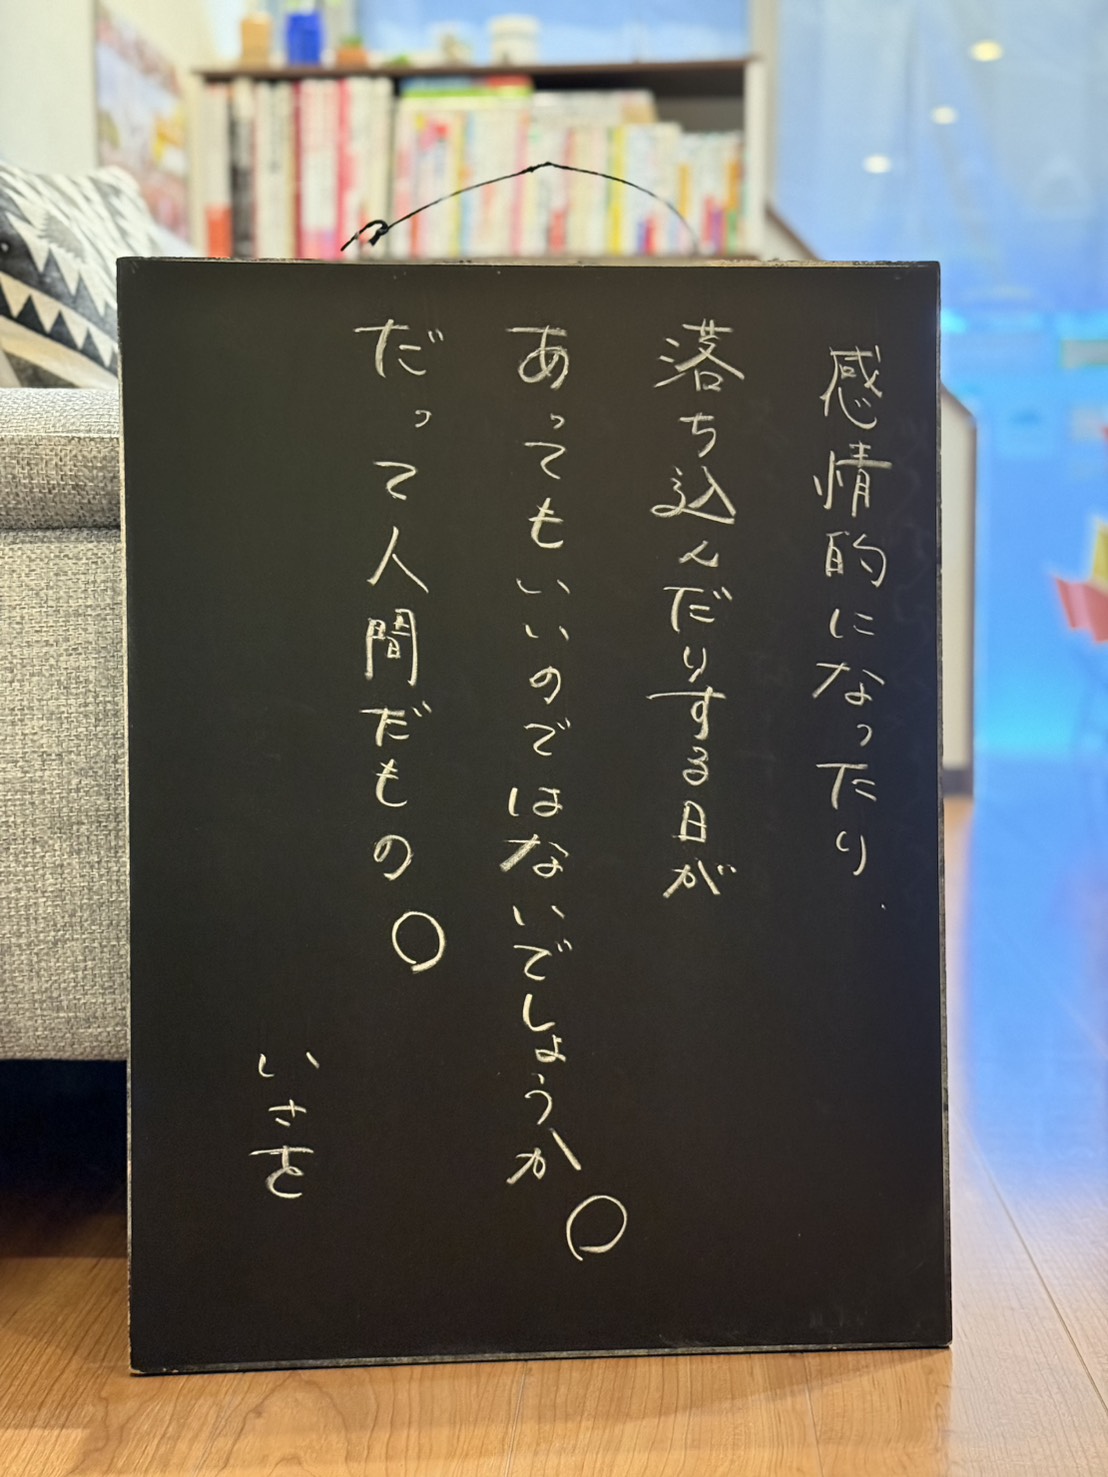 感情的になったり
落ち込んだりする日が
あってもいいのではないでしょうか。
だって人間だもの。
いさを